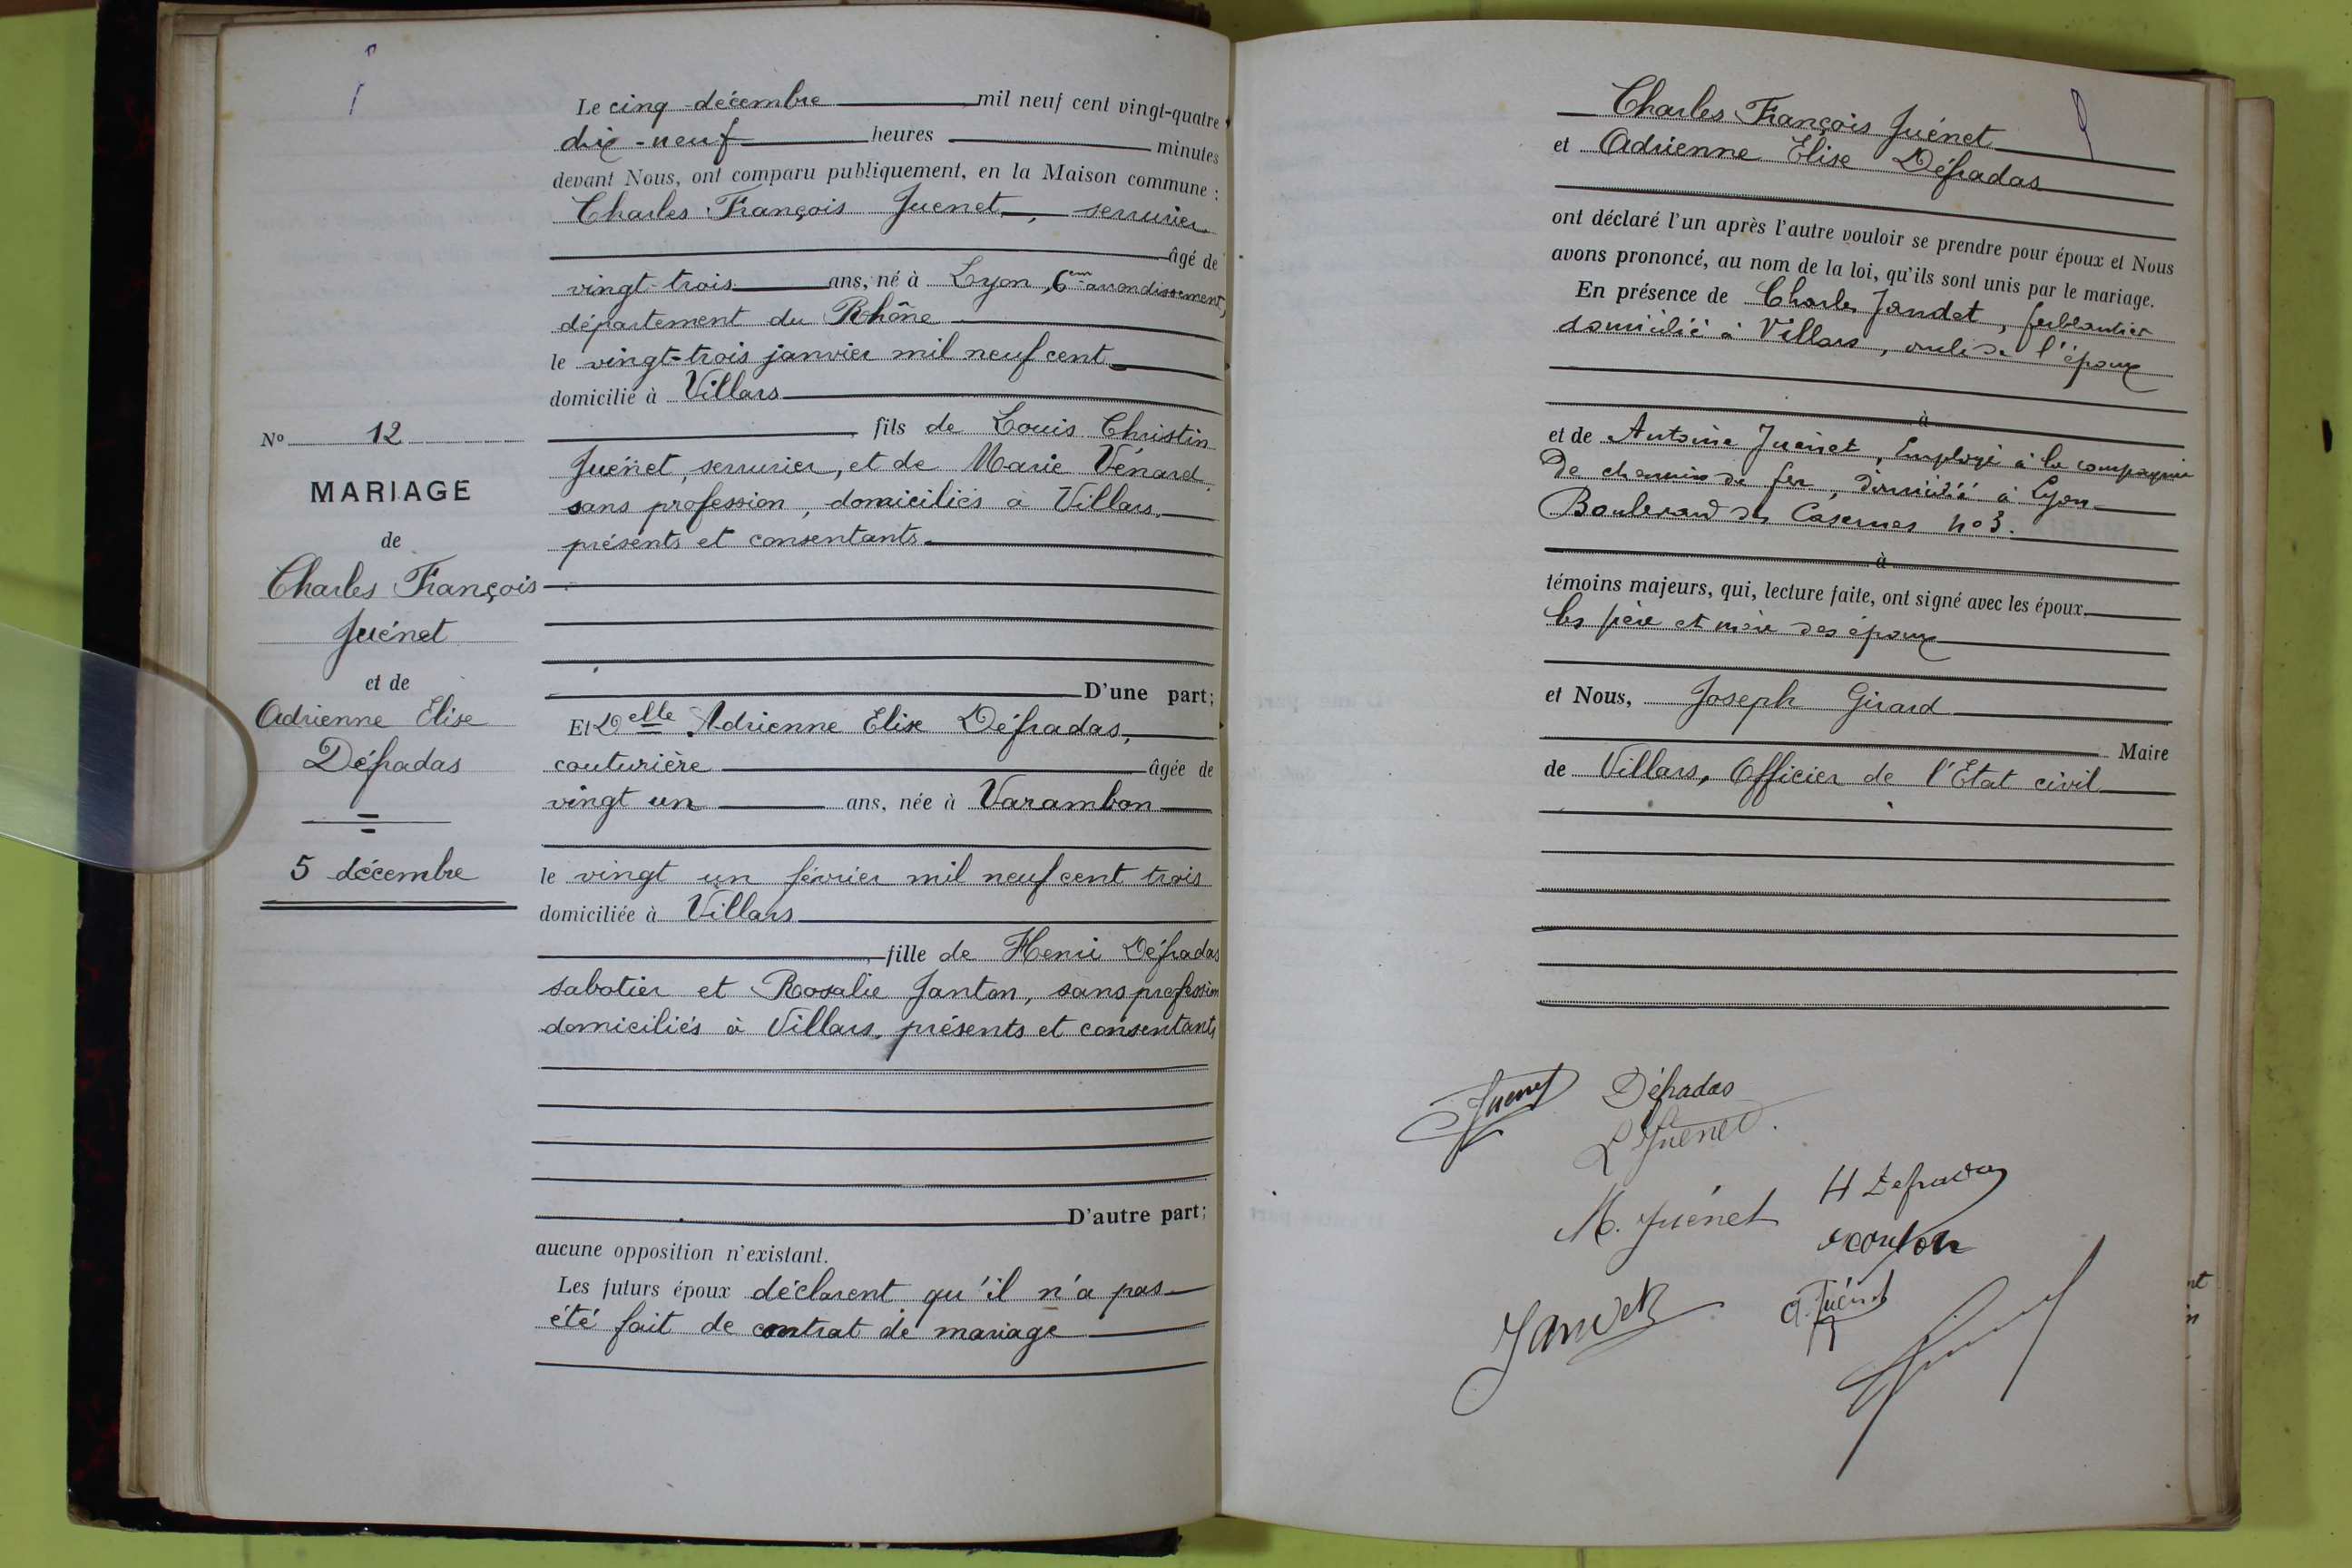 Le cinq décembre mil neuf cent vingt-quatre
dix-neuf heures minutes
devant Nous, ont comparu publiquement, en la Maison commune :
Charles François Juenet, serrurier
âgé de
vingt-trois ans, né à Lyon, 6em arrondissement,
département du Rhône
le vingt-trois janvier mil neuf cent
domicilié à Villars
fils de Louis Christin
Juénet, serrurier, et de Marie Vénard,
sans profession, domiciliés à Villars,
présents et consentants.
D'une part;
Et Delle Adrienne Elise Défradas,
couturière âgée de
vingt un ans, née à Varambon
le vingt un février mil neuf cent trois
domiciliée à Villars
fille de Henri Défradas
sabotier et Rosalie Janton, sans profession
domiciliés à Villars, présents et consentants
D'autre part;
aucune opposition n'existant.
Les futurs époux déclarent qu'il n'a pas
été fait de contrat de mariage
No 12
MARIAGE
de
Charles François
Juénet
et de
Adrienne Elise
Défradas
5 décembre
Charles François Juénet
et Adrienne Elise Défradas
ont déclaré l'un après l'autre vouloir se prendre pour époux et Nous
avons prononcé, au nom de la loi, qu'ils sont unis par le mariage.
En présence de Charles Jandet, ferblantier
domicilié à Villars, oncle de l'époux
à
et de Antoine Juenet, Employé à la compagnie
de chemin de fer, domicilié à Lyon
Boulevard des Casernes no 3.
à
témoins majeurs, qui, lecture faite, ont signé avec les époux
les père et mère des époux
et Nous, Joseph Girard
Maire
de Villars, Officier de l'Etat civil
Juenet Défradas
L Juénet
M. Juénet H Defradas
Jandet A. Juénet